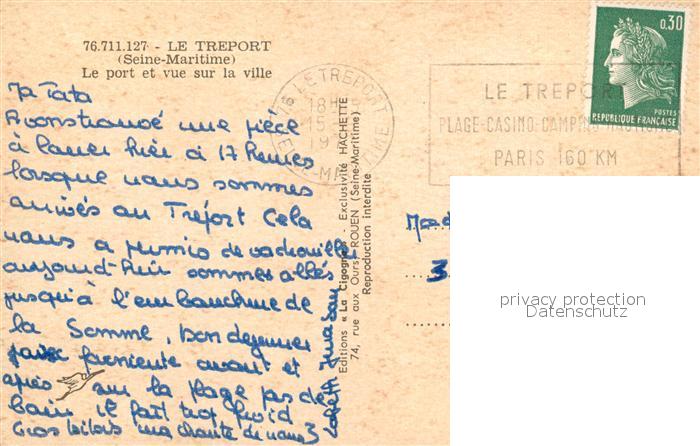 76.711.127 - LE TREPORT
(Seine-Maritime)
Le port et vue sur la ville
Ma Tata
Avons trouvé une pièce
à louer hier à 17 heures
lorsque nous sommes
arrivés au Tréport Cela
nous a permis de
aujourd'hui sommes allés
jusqu'à l'embouchure de
la Somme, bon dejeuner
farniente avant et
après sur la plage pas de
bain il fait trop froid
Gros bisous ma chante de nous 3
Editions « La Cigogne » - Exclusivité HACHETTE
74, rue aux Ours, ROUEN (Seine-Maritime)
Reproduction interdite
76 LE TREPORT
18H
15
19
SEINE-MARITIME
LE TREPORT
PLAGE-CASINO-CAMPING-NAUTISME
PARIS 160 KM
0,30
POSTES
REPUBLIQUE FRANÇAISE
Mad
3
privacy protection
Datenschutz